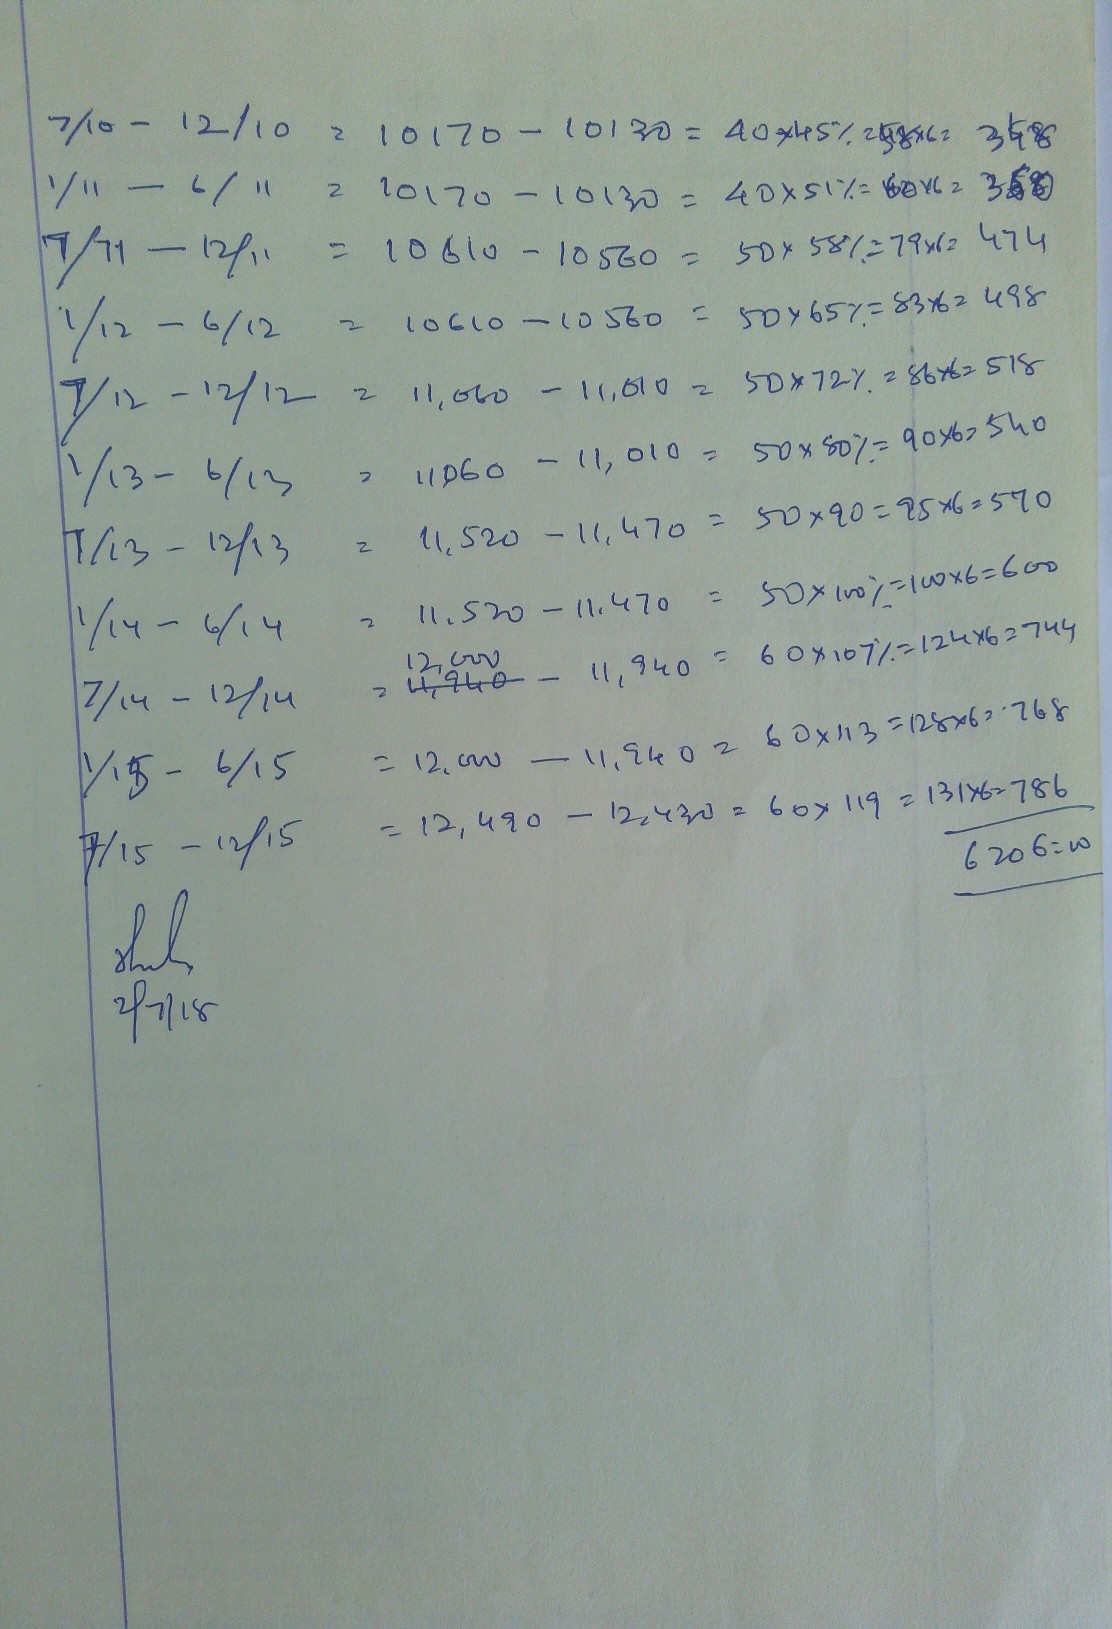 7/10 - 12/10 = 10170 - 10130 = 40x45% = 58x6 = 348
1/11 - 6/11 = 10170 - 10130 = 40x51% = 60x6 = 360
7/11 - 12/11 = 10610 - 10560 = 50x58% = 79x6 = 474
1/12 - 6/12 = 10610 - 10560 = 50x65% = 83x6 = 498
7/12 - 12/12 = 11,060 - 11,010 = 50x72% = 86x6 = 518
1/13 - 6/13 = 11060 - 11,010 = 50x80% = 90x6 = 540
7/13 - 12/13 = 11,520 - 11,470 = 50x90 = 95x6 = 570
1/14 - 6/14 = 11.520 - 11.470 = 50x100% = 100x6 = 600
12,000
7/14 - 12/14 = 11,940 - 11,940 = 60x107% = 124x6 = 744
1/15 - 6/15 = 12,000 - 11,940 = 60x113 = 128x6 = 768
7/15 - 12/15 = 12,490 - 12,430 = 60x119 = 131x6 = 786
6206=00
2/7/18